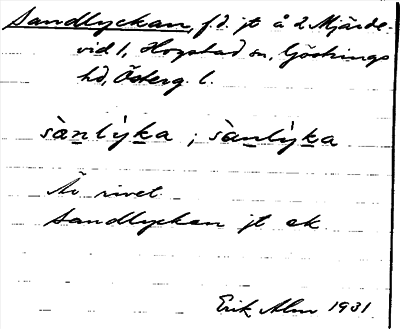 Sandlyckan, f.d. jt å 2 Mjärde-
vid 1, Hogstad sn, Göstrings
hd, Österg. l.
sànlỳka ; sànlỳka
Är rivet.
Sandlyckan jt ek
Erik Alm 1931